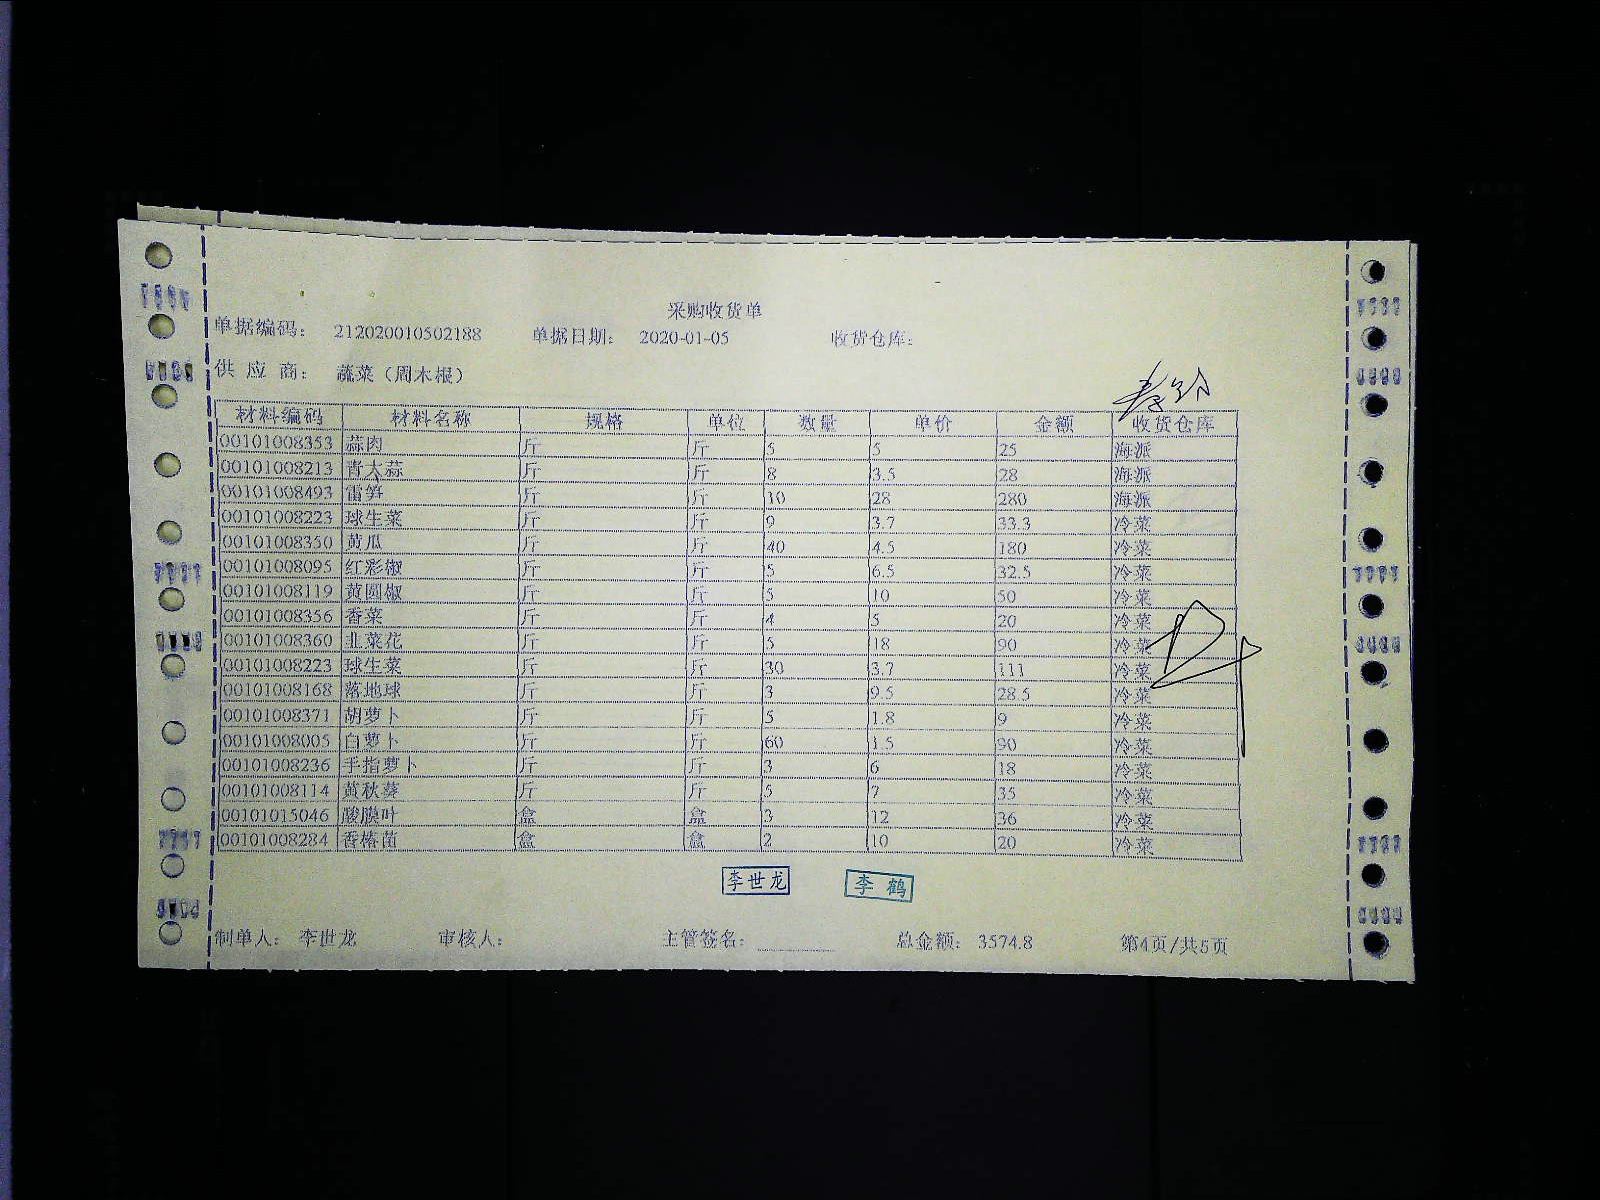 采购收货单
单据编码： 212020010502188 单据日期： 2020-01-05 收货仓库：
供 应 商： 蔬菜（周木根）
材料编码 材料名称 规格 单位 数量 单价 金额 收货仓库
00101008353 蒜肉 斤 斤 5 5 25 海派
00101008213 青大蒜 斤 斤 8 3.5 28 海派
00101008493 雷笋 斤 斤 10 28 280 海派
00101008223 球生菜 斤 斤 9 3.7 33.3 冷菜
00101008350 黄瓜 斤 斤 40 4.5 180 冷菜
00101008095 红彩椒 斤 斤 5 6.5 32.5 冷菜
00101008119 黄圆椒 斤 斤 5 10 50 冷菜
00101008356 香菜 斤 斤 4 5 20 冷菜
00101008360 韭菜花 斤 斤 5 18 90 冷菜
00101008223 球生菜 斤 斤 30 3.7 111 冷菜
00101008168 落地球 斤 斤 3 9.5 28.5 冷菜
00101008371 胡萝卜 斤 斤 5 1.8 9 冷菜
00101008005 白萝卜 斤 斤 60 1.5 90 冷菜
00101008236 手指萝卜 斤 斤 3 6 18 冷菜
00101008114 黄秋葵 斤 斤 5 7 35 冷菜
00101015046 酸膜叶 盒 盒 3 12 36 冷菜
00101008284 香椿苗 盒 盒 2 10 20 冷菜
李世龙 李鹤
制单人： 李世龙 审核人： 主管签名： 总金额： 3574.8 第4页/共5页